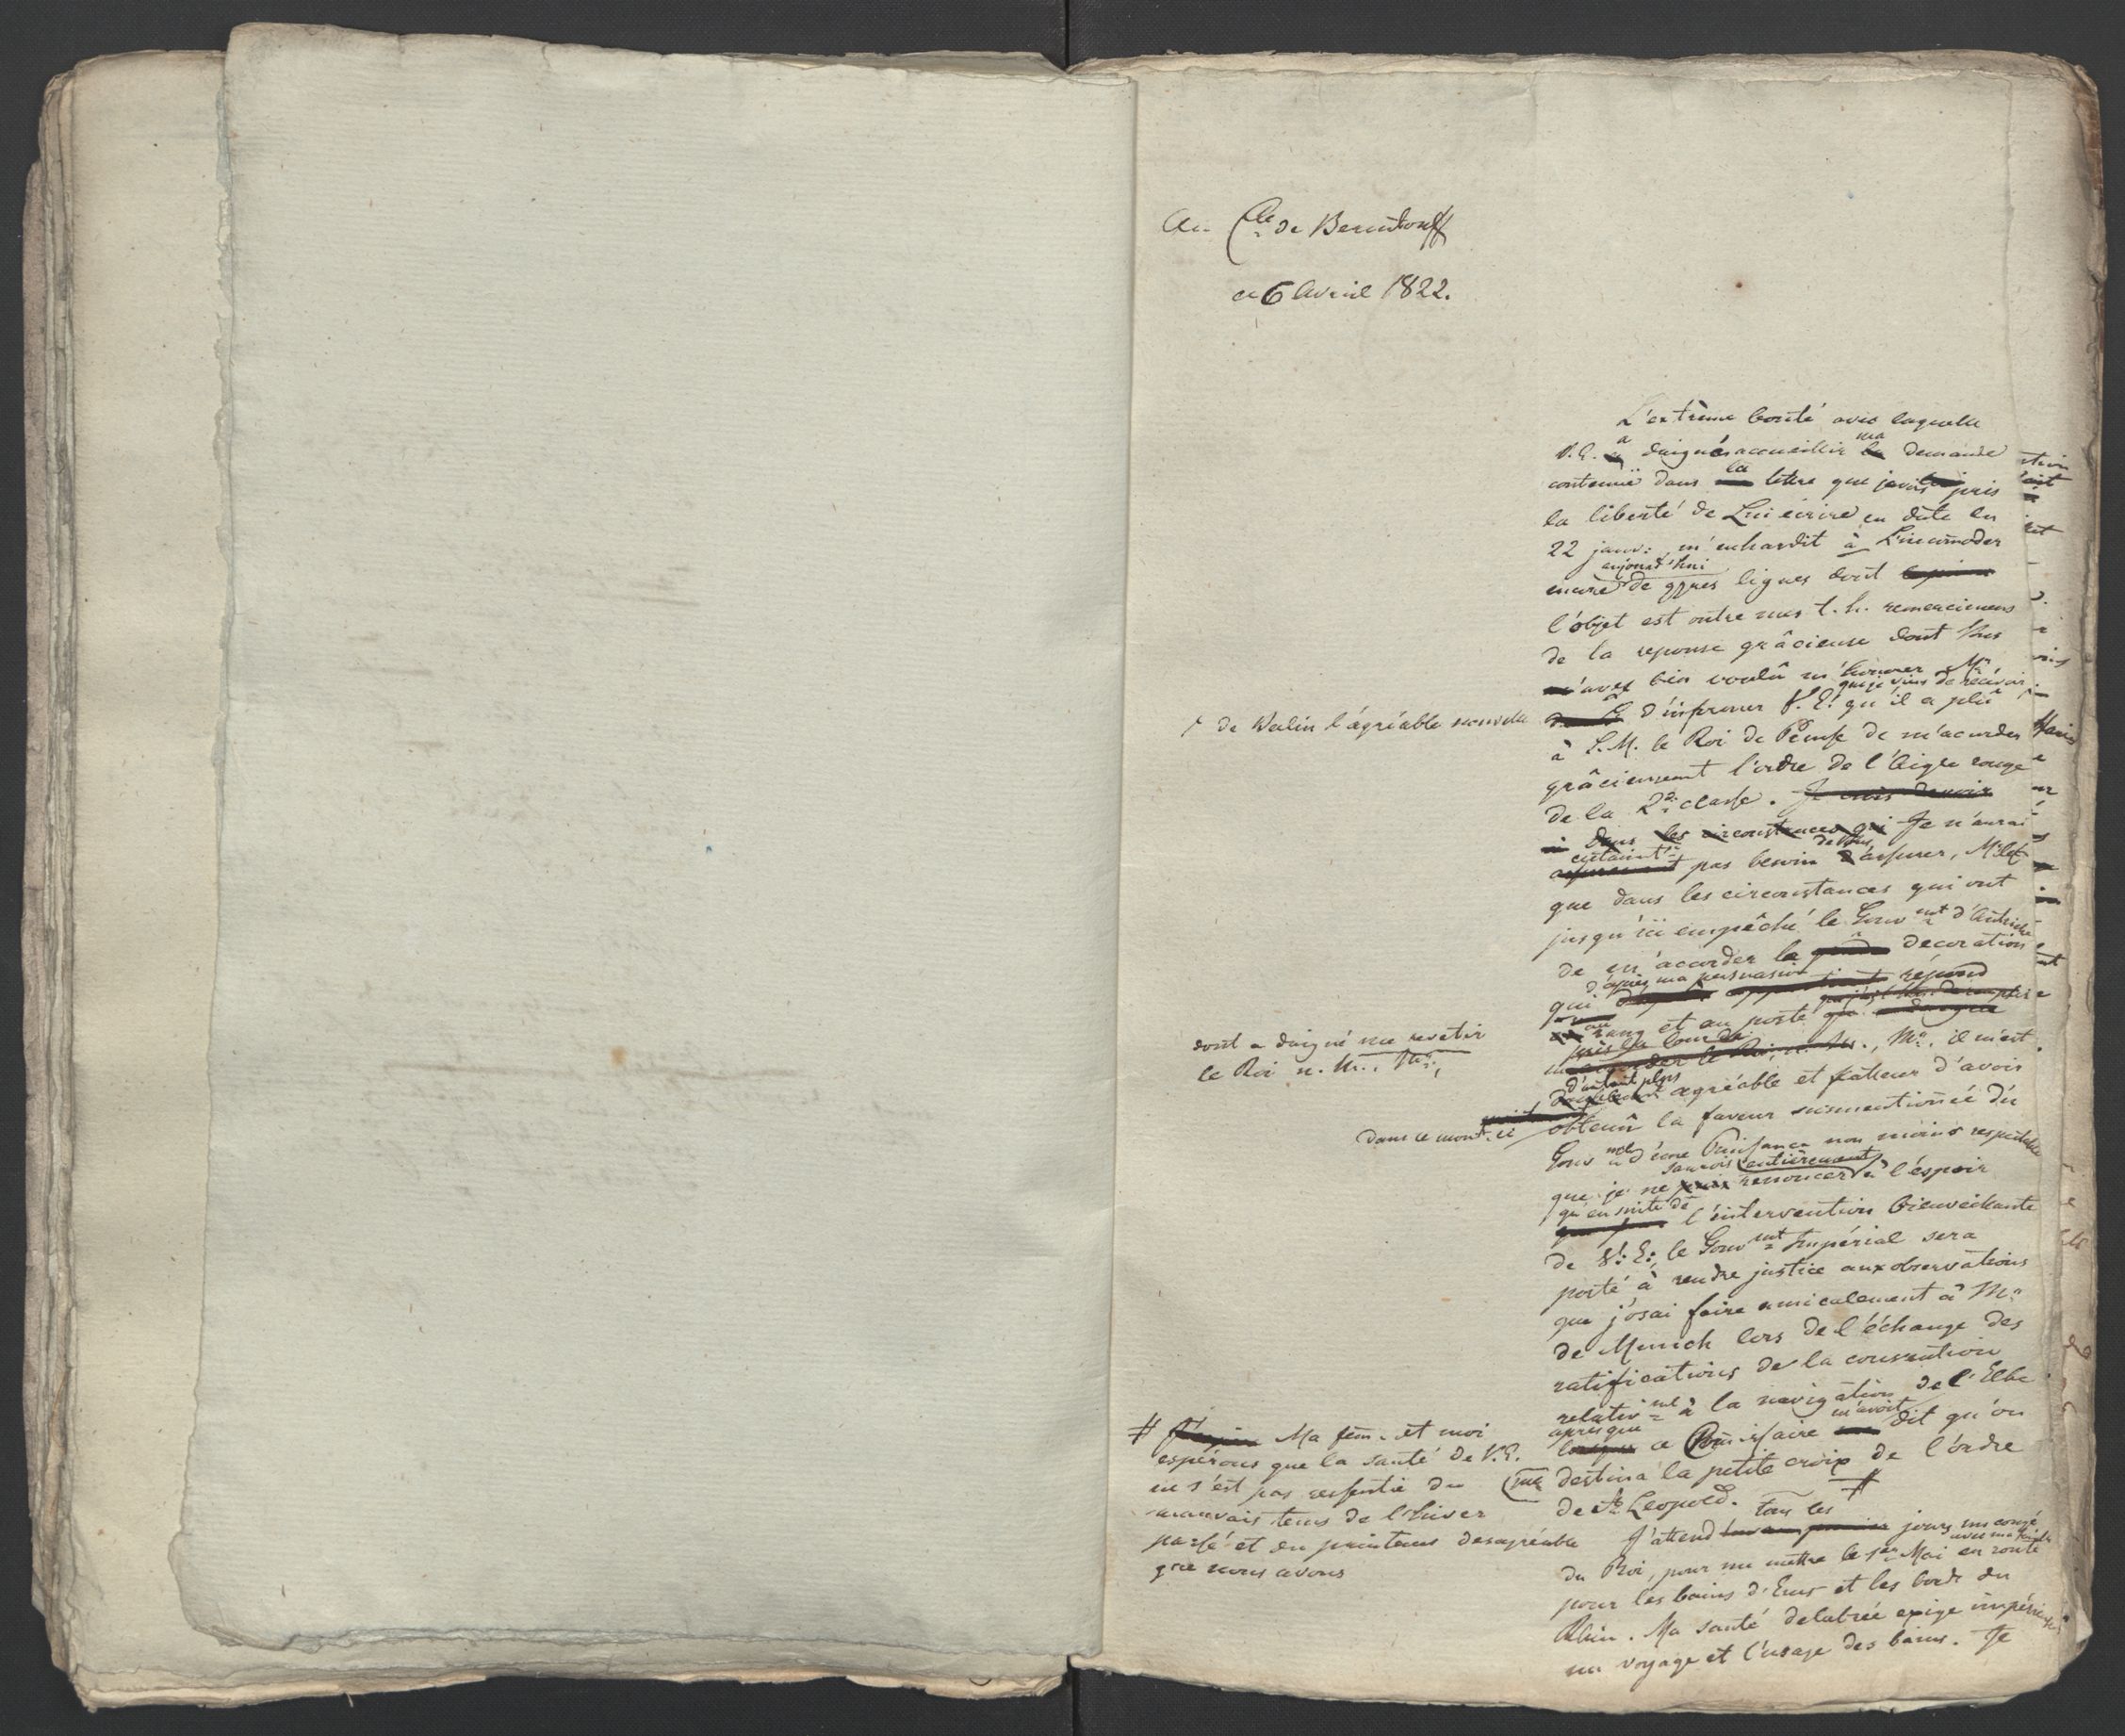 Au Cte de Bernstorff
ce 6 Avril 1822.
L'extrême bonté avec laquelle
V. E. a daigné accueillir ma demande
contenuë dans la lettre que j'avois pris
la liberté de Lui écrire en date du
22 janv: m'enhardit à L'incommoder
encore aujourd'hui de qques lignes dont
l'objet est outre mes t. h. remerciemens
de la reponse grâcieuse dont Vous
m'avez bien voulû m'honorer Mr
de Berlin l'agréable nouvelle
que je viens de récévoir
d'informer V. E. qu'il a plû
à S. M. le Roi de Prusse de m'acorder
grâcieusement l'ordre de l'Aigle rouge
de la 2de classe. Je crois devoir
dans les circonstances qui Je n'aurai
certainemt pas besoin de Vous assurer, Mr le
que dans les circonstances qui ont
jusqu'ici empêché le Gouvmt d'Autriche
de m'accorder la decoration
qui d'après ma persuasion répond
au rang et au poste
dont a daigné me revetir
le Roi n. M., Mr,
près la Cour de
Mr. il m'est
d'autant plus agréable et flatteur d'avoir
dans ce momt ci obtenû la faveur susmentionnée du
Gouvmt d'une Puissance non moins respectable
que je ne saurois entièrement renoncer à l'espoir
qu'en suite de l'intervention bienveillante
de V. E. le Gouvmt Impérial sera
porté à rendre justice aux observations
que j'osai faire amicalement à Mr
de Munch lors de l'échange des
ratifications de la convention
relativmt à la navigation de l'Elbe
après que ce Commissaire m'avoit dit qu'on
me destina la petite croix de l'ordre
de St Leopold. #
# Ma fem: et moi
espérons que la santé de V. E.
ne s'est pas ressentie du
mauvais tems de l'hiver
passé et du printems desagréable
que nous avons
J'attend tous les jours un congé
du Roi, pour me mettre le 1er Mai en route
avec ma famille
pour les bains d'Ems et les bords du
Rhin. Ma santé delabrée exige impérieusemt
un voyage et l'usage des bains. Je